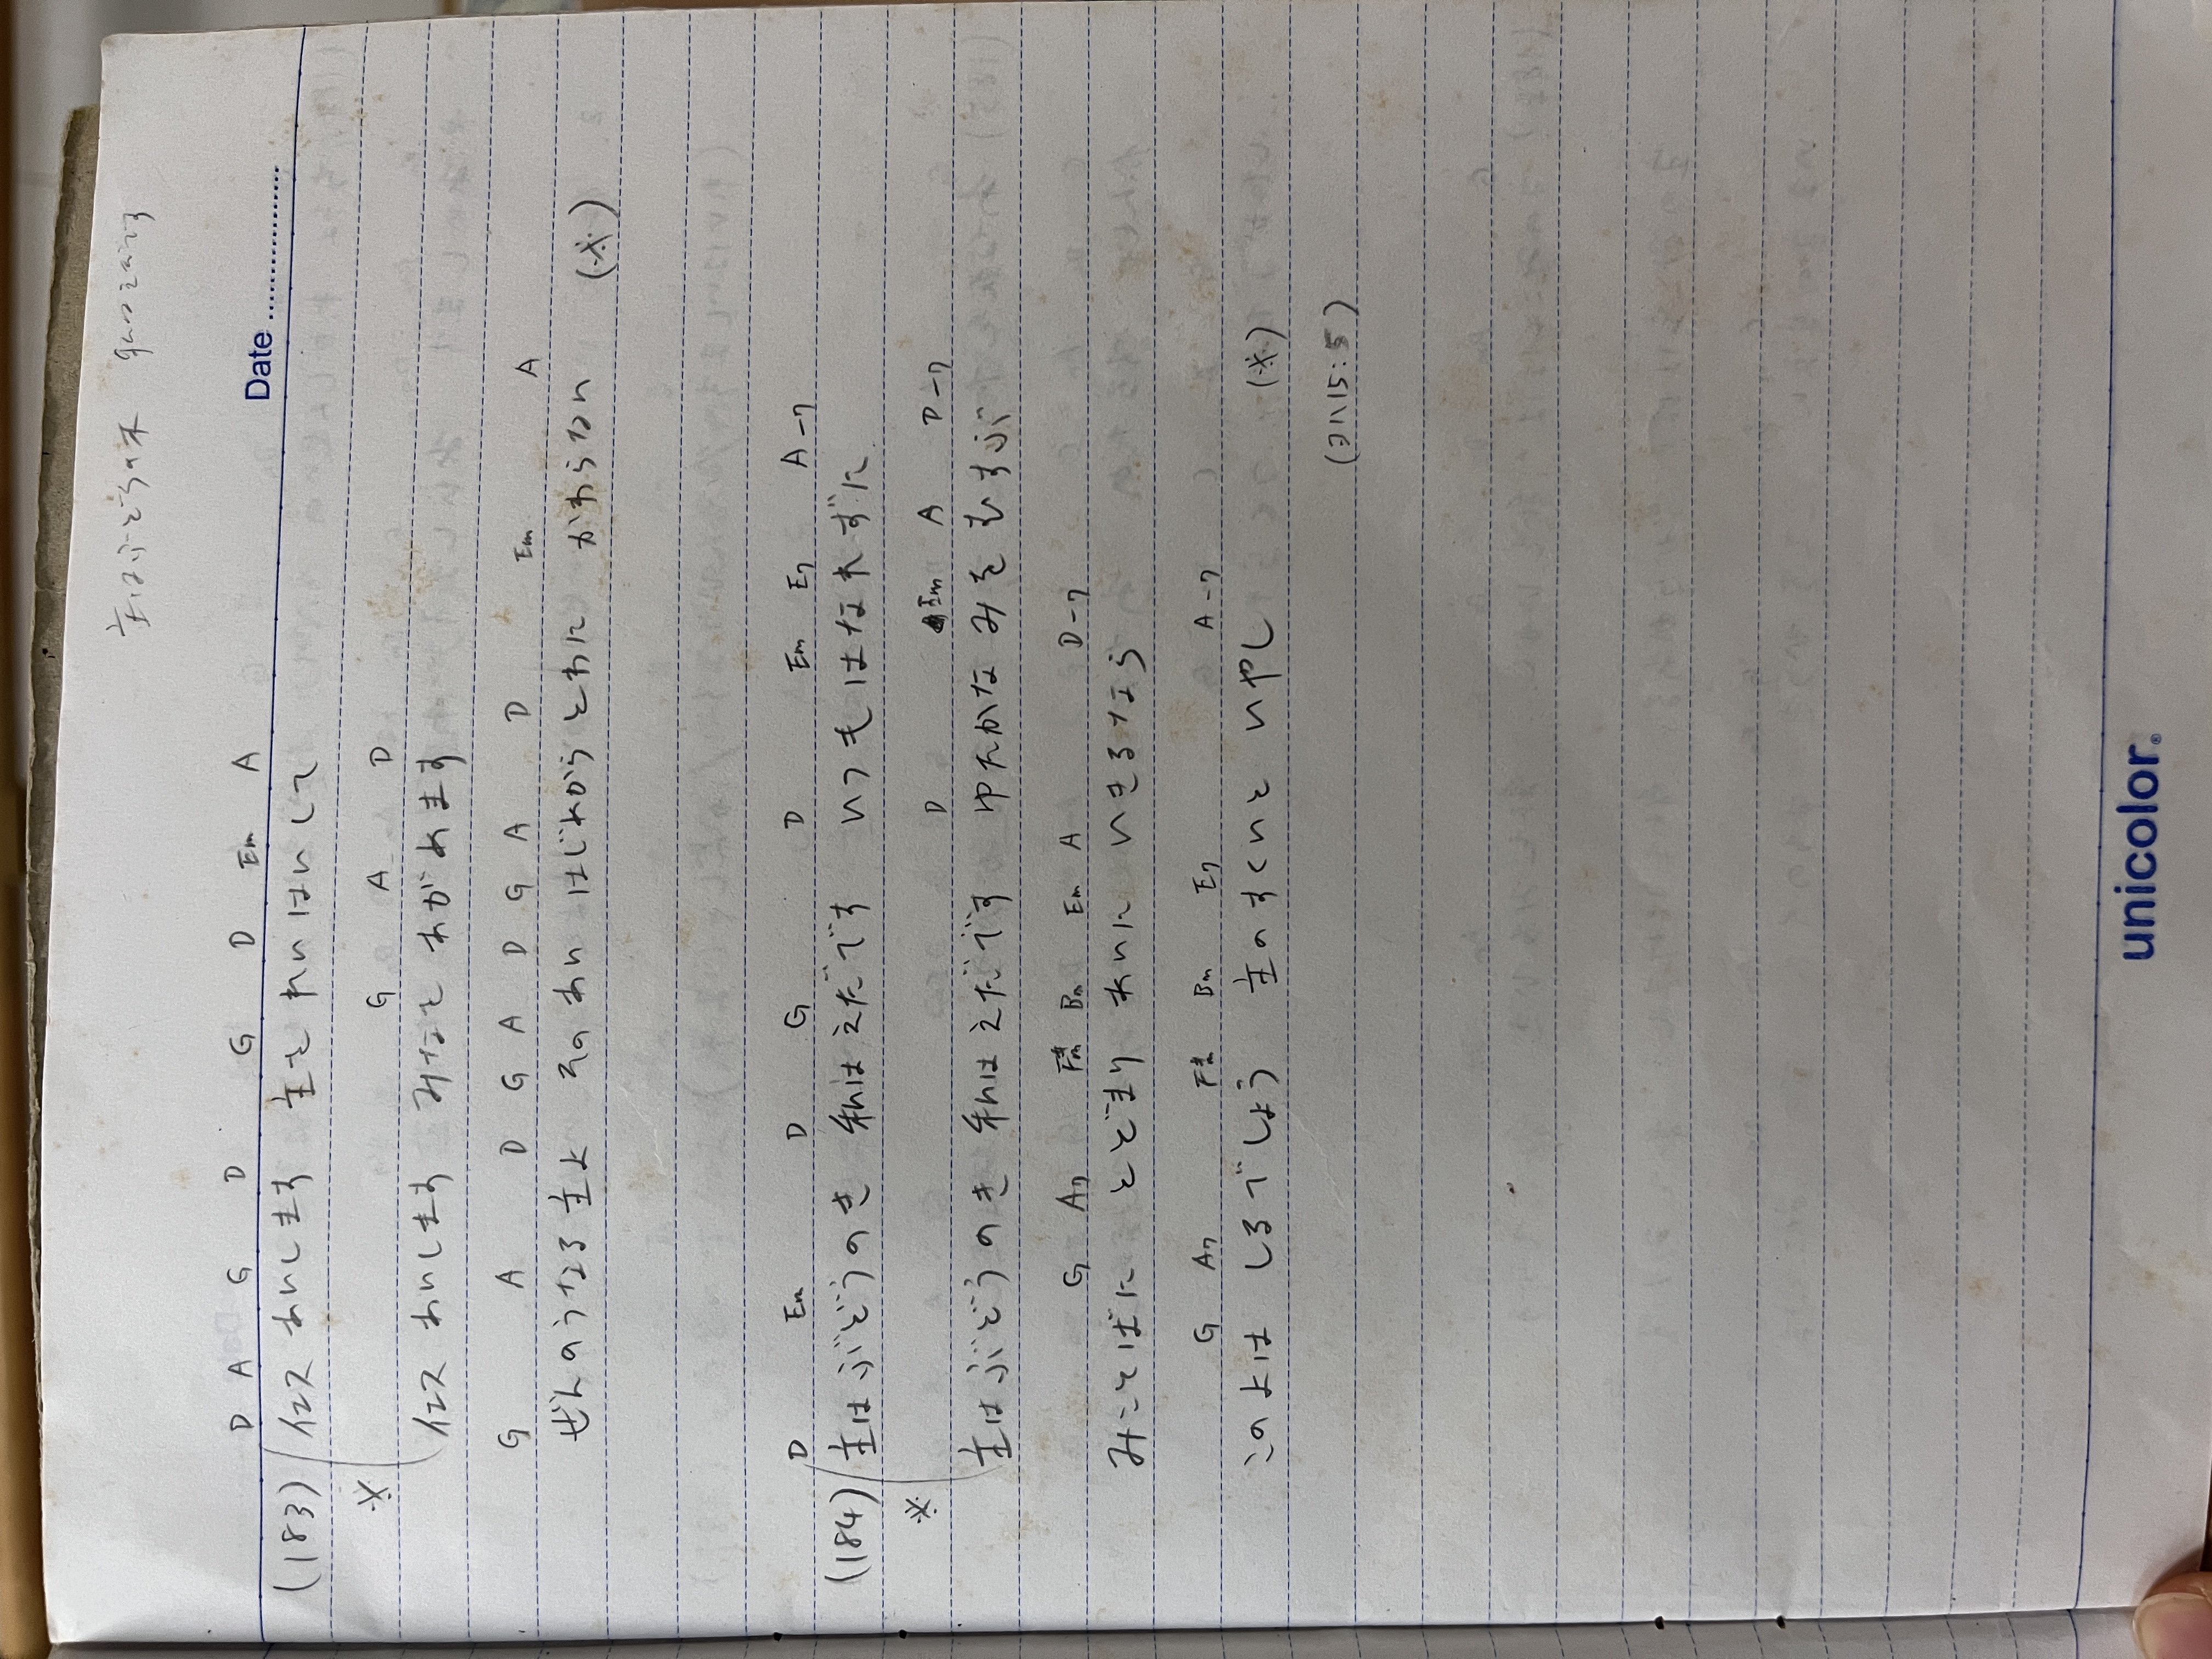 主はぶどうの木
Date
D A G D G D Em A
(183) イエス あいします 主を れいはいして
※ G A D
イエス あいします みなを あがめます
G A D G A D G A D Em A
ぜんのうなる 主よ そのあい はじめからとわに かわらない (※)
D Em D G D Em E7 A-7
(184) 主はぶどうのき 私はえだです いつもはなれずに
※ D Em A D-7
主はぶどうのき 私はえだです ゆたかなみをむすぶ
G A7 F#m Bm Em A D-7
みことばに とどまり あいに いきるなら
G A7 F#m Bm E7 A-7
このよは しるでしょう 主のすくいと いやし (※)
(ヨハ15:5)
unicolor.